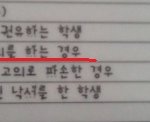 권유하는 학생
를 하는 경우
고의로 파손한 경우
낙서를 한 학생